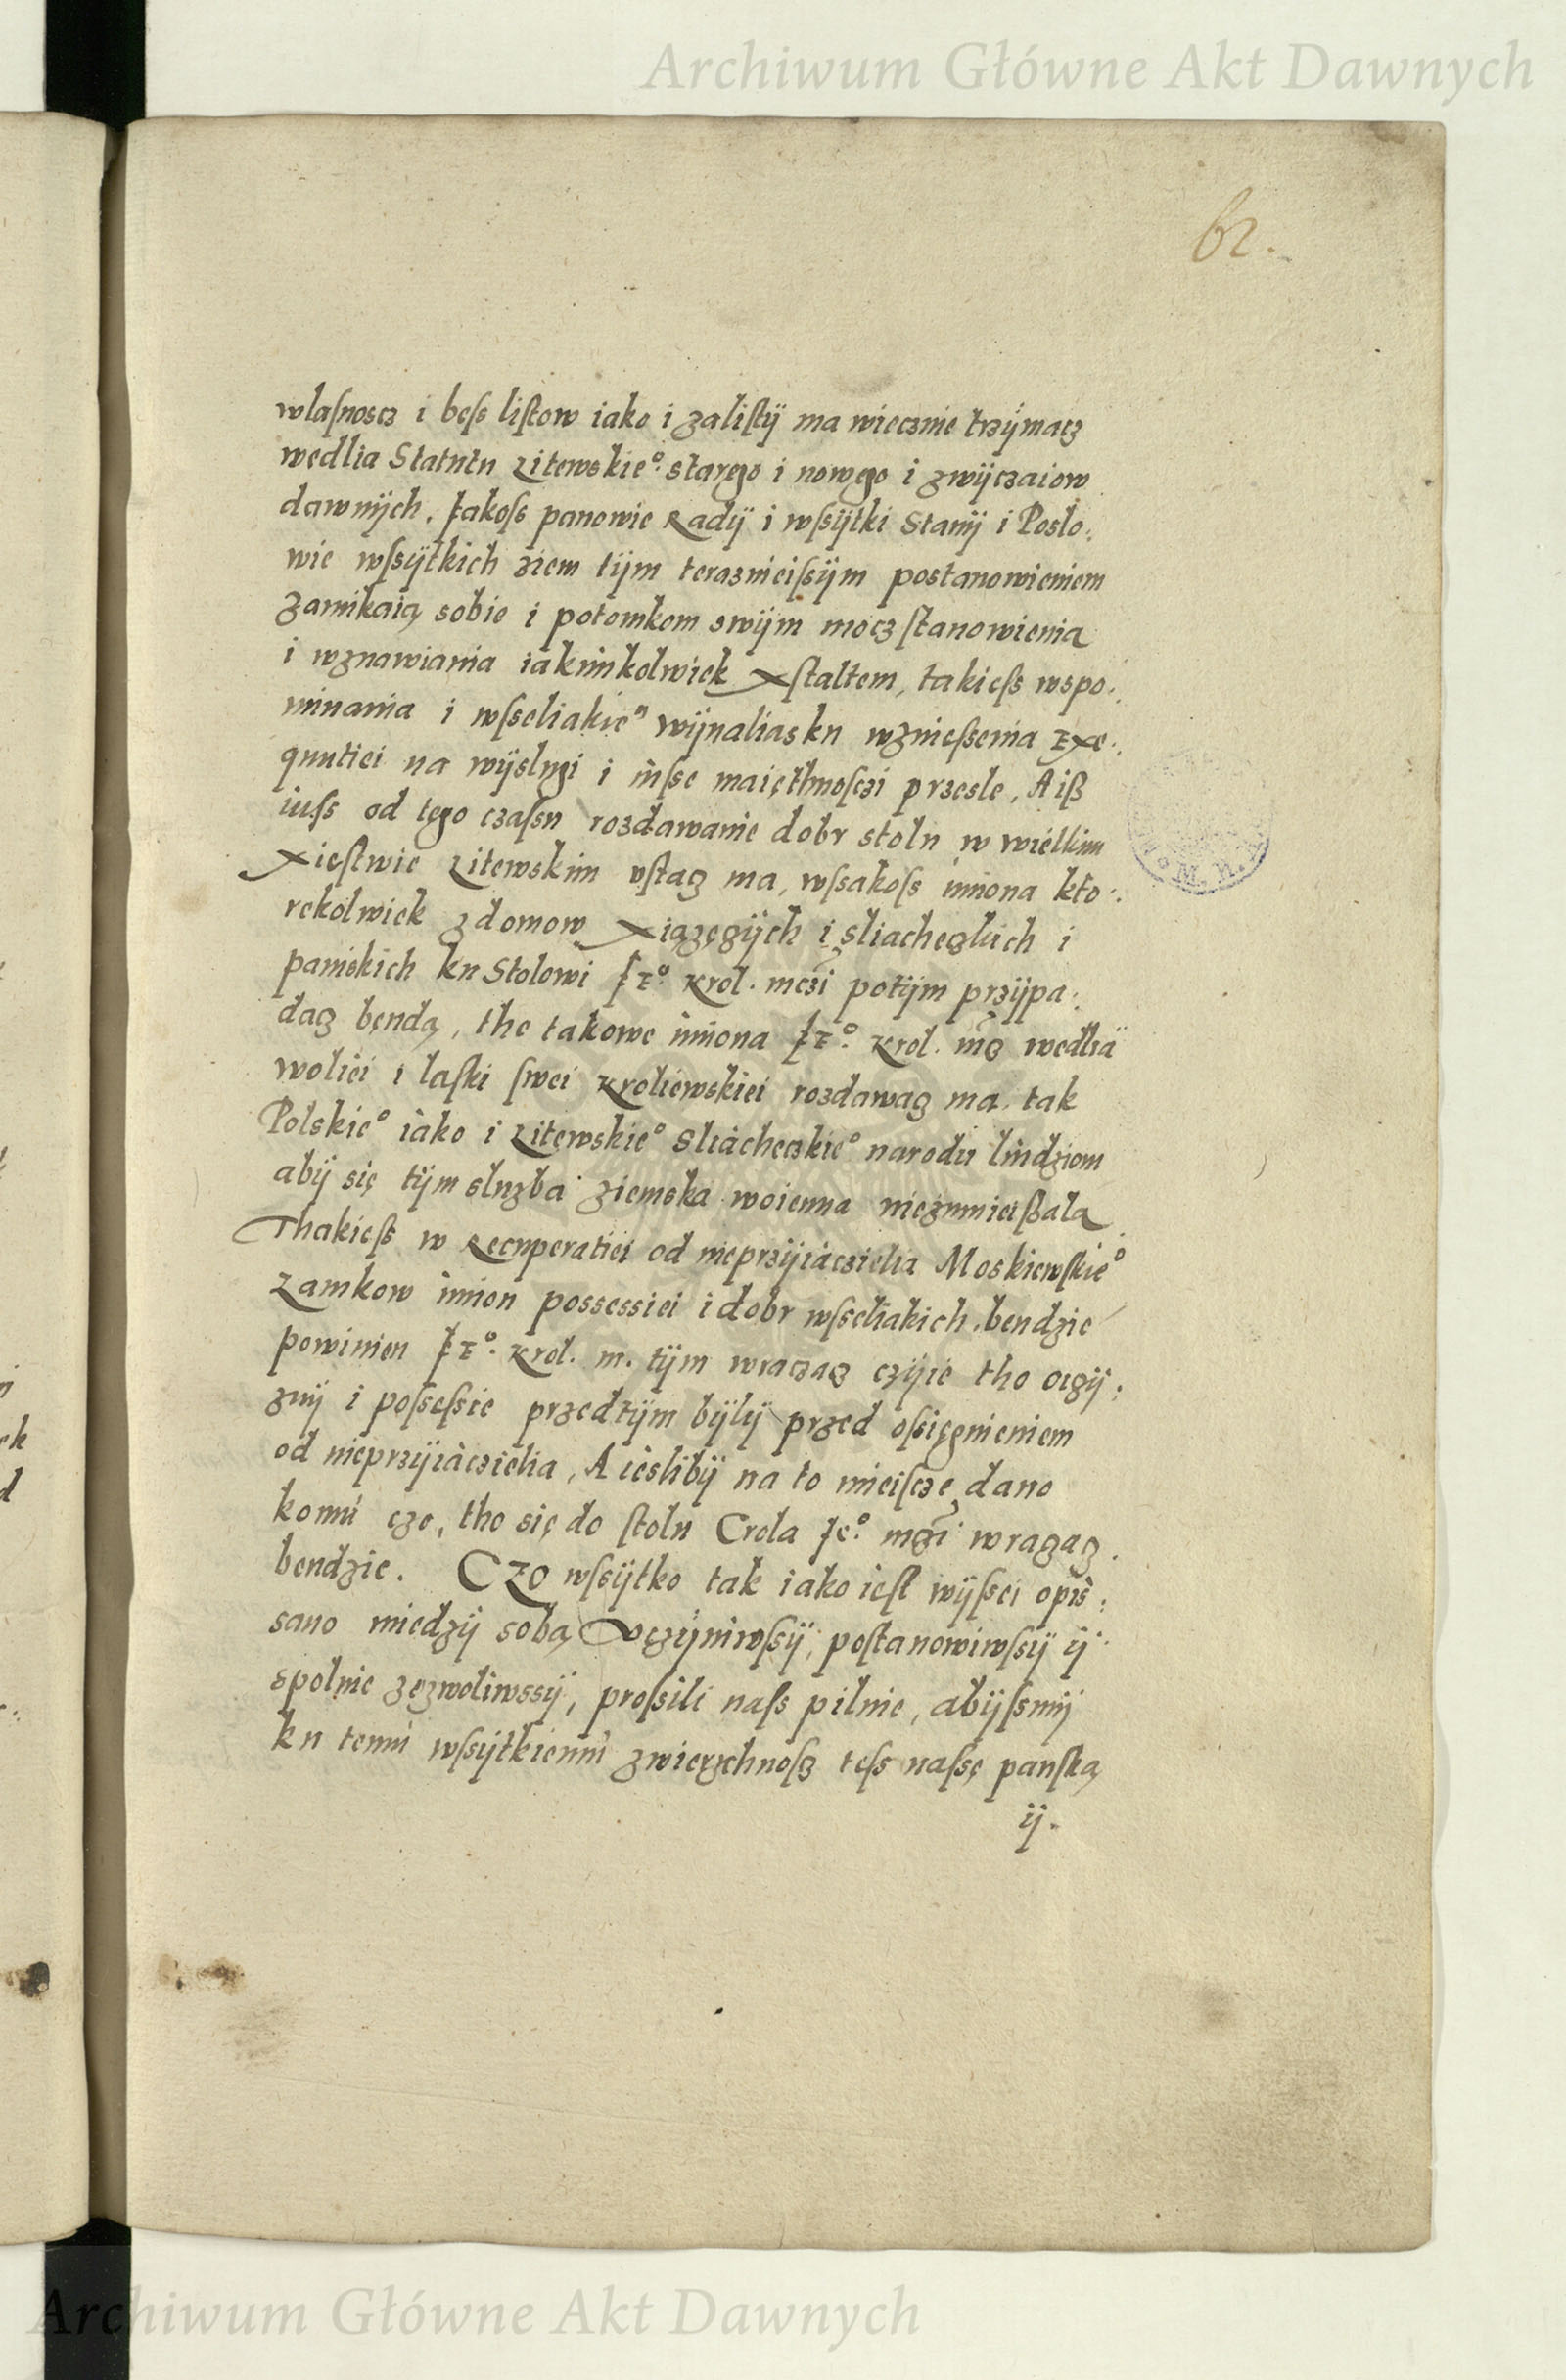 Archiwum Główne Akt Dawnych
62.
wlaſnoscz i beſs liſtow iako i zaliſtÿ ma wiecznie trzÿmacz
wedlia Statutu Litewskieº. starego i nowego i zwÿczaiow
dawnÿch. Jakoſs panowie Radÿ i wſsÿtki Stanÿ i Poslo:
wie wſsÿtkich ziem tÿm teraznieiſsÿm postanowieniem
zamikaią sobie i potomkom swÿm mocz ſtanowienia
i wznawiania iakimkolwiek xſtaltem, takieſs wspo:
minania i wſseliakieº wÿnaliasku wznieſsenia Exe:
qnutiei na wÿslugi i inſse maięthnoſczi przesle, Aiß
iuſs od tego czaſsu rozdawanie dobr stolu w wielkim
xieſtwie Litewskim vſtacz ma, wſsakoſs imiona kto:
rekolwiek z domow xiążęczÿch i sliacheczkich i
panskich ku Stolowi JEº. Krol. mczi potÿm przÿpa:
dacz będą, the takowe imiona JEº. Krol. mcz wedlia
woliei i laſki ſwei Kroliewskiei rozdawacz ma. tak
Polskieº iako i Litewskieº Sliacheczkieº narodu liudziom
abÿ się tÿm sluzba ziemska woienna niezmnieißala
Thakieſs w Recuperatiei od nieprzÿiaczielia Moskiewſkieº
zamkow imion possessiei i dobr wſseliakich. bendzie
powinien JEº. Krol. m. tÿm wraczacz czÿie tho oiczÿ:
znÿ i poſseſsie przedtÿm bÿlÿ przed oſsięgnieniem
od nieprzÿiaczielia, A iesliby na to mieiſcze dano
komu czo, tho się do ſtolu Crola Jeº. mczi wraczacz
bendzie. CZO wſsÿtko tak iako ieſt wÿſsei opis:
sano miedzÿ sobą vczÿniwſsÿ, poſtanowiwſsÿ ÿ
spolnie zezwoliwssÿ, proſsili naſs pilnie, abÿſsmÿ
ku temu wſsÿtkiemu zwierzchnoſcz teſs naſsę panſką
ÿ.
Archiwum Główne Akt Dawnych